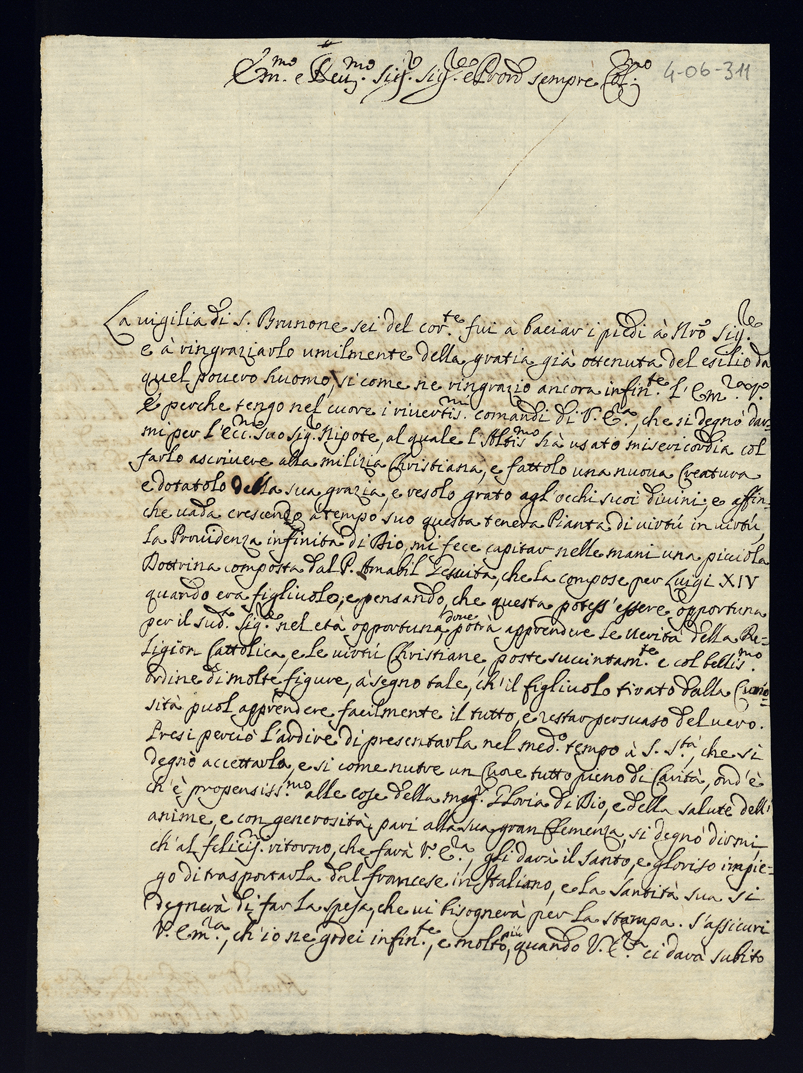 Em.mo e Reu.mo Sig.r Sig.re e Pron̄ sempre Col.mo
4-06-311
La uigilia di S. Brunone sei del cor.te fui à baciar i piedi à Nrō Sig.re
e à ringraziarlo umilmente della gratia già ottenuta del esilio da
quel pouero huomo, si come ne ringrazio ancora infin.te l'Em.za V.
E perche tengo nel cuore i riuertis.mi comandi di V. E.za, che si degnò dar=
mi per l'ecc.mo suo Sig.r Nipote, al quale l'Altis.mo hà usato misericordia col
farlo ascriuere alla milizia Christiana, e fattolo una nuoua Creatura
e dotatolo della sua grazia, e resolo grato agl'occhi suoi diuini; e affin=
che uada crescendo a tempo suo questa tenera Pianta di uirtù in uirtù,
la Prouidenza infinita di Dio, mi fece capitar nelle mani una picciola
Dottrina composta dal P. Amabil Gesuita, che la compose per Luigi XIV
quando era figliuolo; e pensando, che questa potess'essere opportuna
per il sud.o Sig.re nel età opportuna, doue potrà apprendere le uerità della Re=
ligion Cattolica, e le uirtù Christiane, poste succintam.te e col bellis.mo
ordine di molte figure, à segno tale, ch'il figliuolo tirato dalla Curio=
sità puol apprendere facilmente il tutto, e restar persuaso del uero.
Presi perciò l'ardire di presentarla nel med.o tempo à S. S.tà, che si
degnò accettarla, e si come nutre un Cuore tutto pieno di Carità, ond'è
ch'è propensiss.mo alle cose della mag.r Gloria di Dio, e della salute dell'
anime, e con generosità pari alla sua gran Clemenza, si degnò dirmi
ch'al felicis. ritorno, che farà V. E.za, gli darà il santo, e glorioso impie=
go di trasportarla dal francese in Italiano, e la Santità sua si
degnerà di far la spesa, che ui bisognerà per la stampa. S'assicuri
V. Em.za, ch'io ne godei infin.te, e molto più quando V. E.za ci darà subito